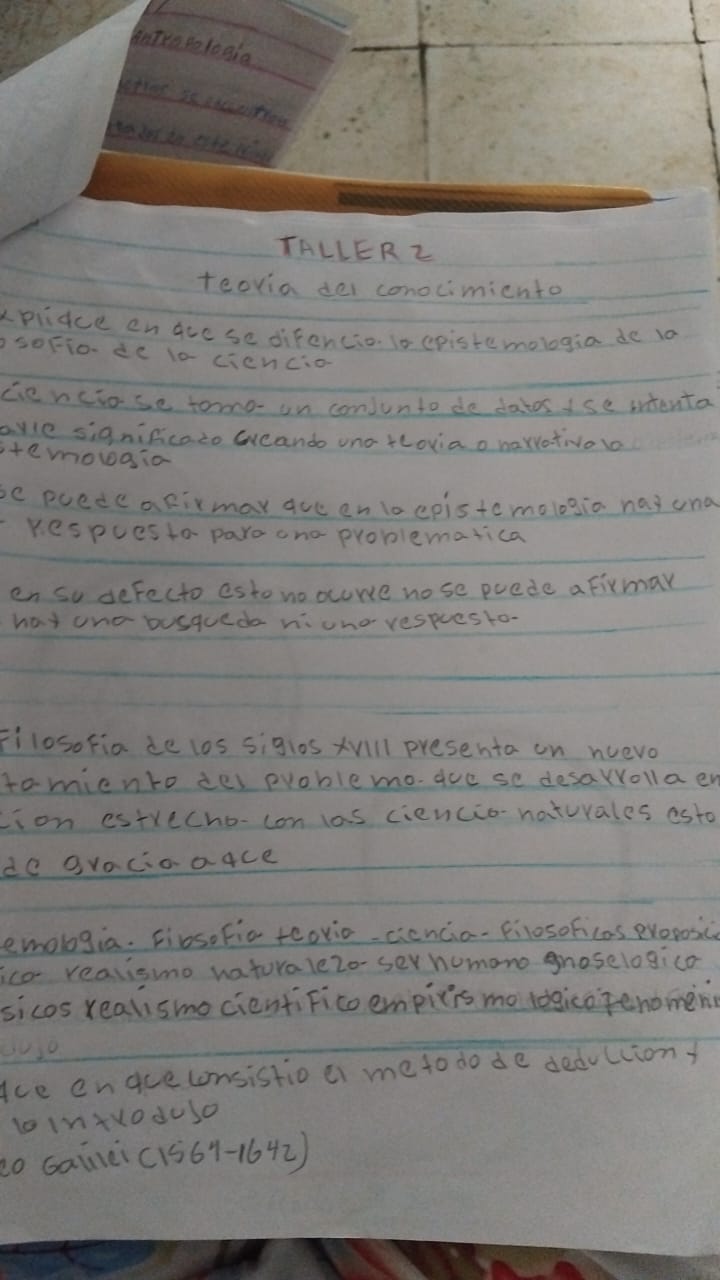 Antropologia
TALLER 2
teoria del conocimiento
xpliqce en que se difencia la epistemologia de la
osofia de la ciencia
ciencia se toma un conjunto de datos y se intenta
arle significado creando una teoria o narrativa la
stemologia
se puede afirmar que en la epistemologia hay una
respuesta para una problematica
en su defecto esto no ocurre no se puede afirmar
hay una busqueda ni una respuesta
Filosofia de los siglos XVIII presenta un nuevo
tamiento del problema que se desarrolla en
cion estrecha con las ciencia naturales esto
de gracia a qce
emologia. Filosofia teoria - ciencia - filosoficas proposic
ico realismo naturaleza ser humano gnoselogico
sicos realismo cientifico empirismo logico fenomeni
qce en que consistio el metodo de deduccion y
lo introdujo
eo Galilei (1564-1642)